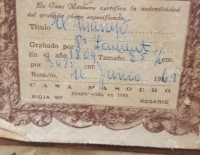 La Casa Masoero certifica la autenticidad
del grabado abajo especificado.
Titulo El
Grabado por St. Laurent
En el año 1809 Tamaño 25 ½ cm
por 34 ½ cm
Rosario, 16 Junio 1961
CASA MASOERO
Establecida en
RIOJA ROSARIO